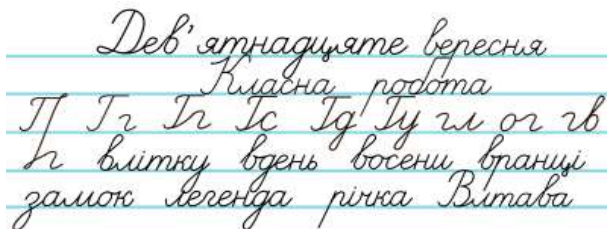 Дев'ятнадцяте вересня
Класна робота
Гг Гг Гс Гд Гу гл ог гв
влітку вдень восени вранці
замок легенда річка Влтава